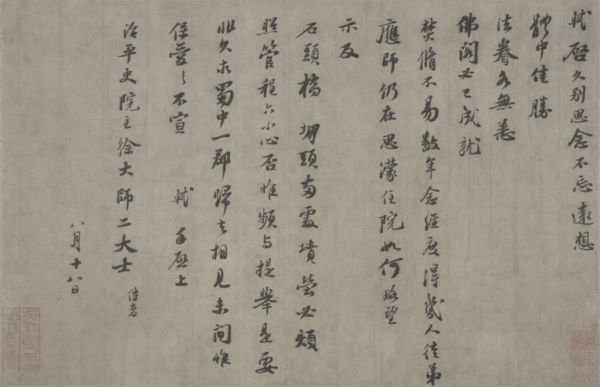 軾啓久別思念不忘遠想
體中佳勝
法眷各無恙
佛閣必已成就
焚脩不易數年念經度得幾人徒弟
應師仍在思濛住院如何略望
示及
石頭橋 堋頭兩處墳塋必煩
照管程六小心否惟頻与提舉是要
非久求蜀中一郡歸去相見未間惟
保愛之不宣 軾手啓上
治平史院主徐大師二大士 侍者
八月十八日